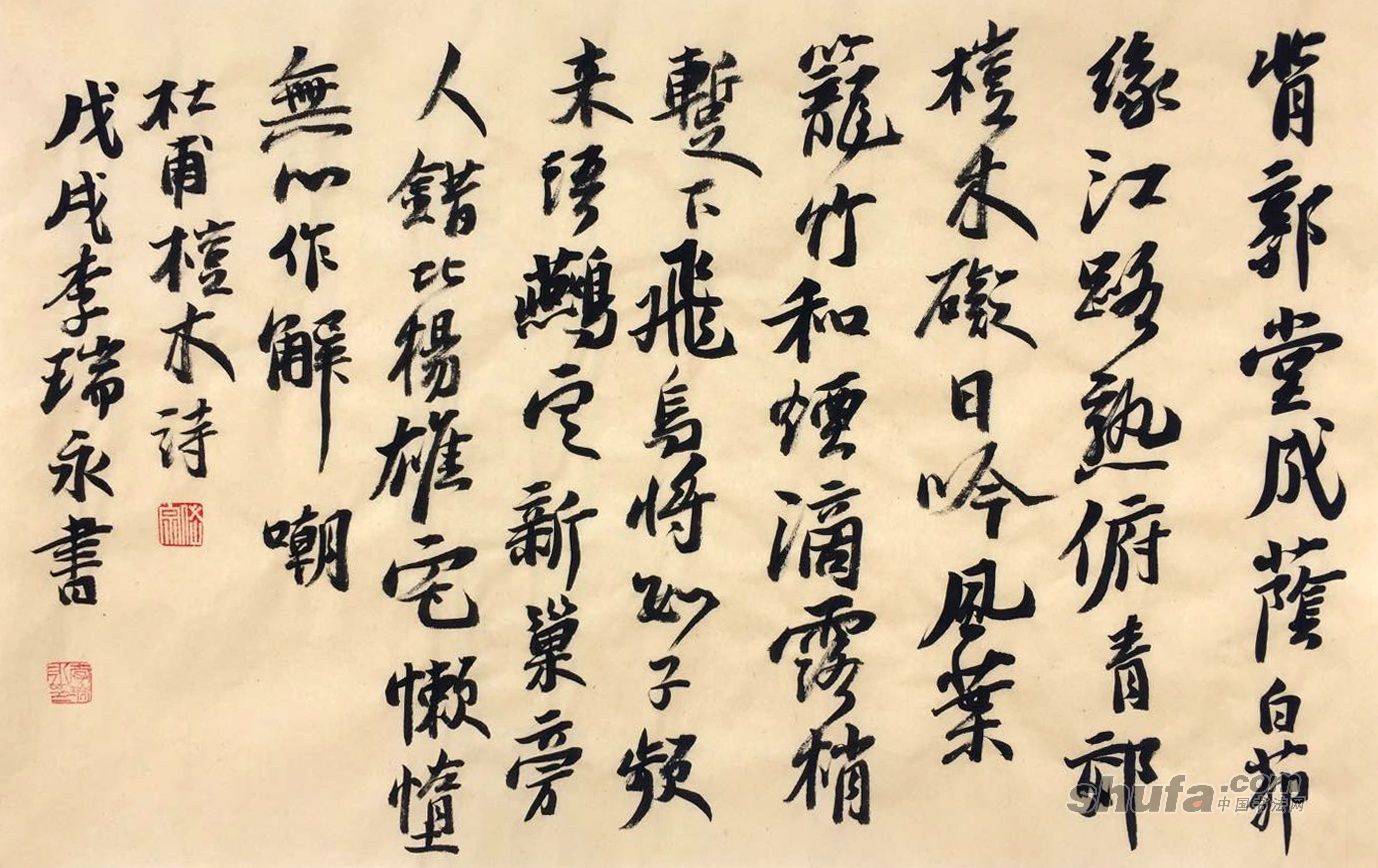 背郭堂成蔭白茆
缘江路熟俯青郊
榿木礙日吟風葉
籠竹和煙滴露梢
暫下飛烏将數子頻
来語鷰定新巢旁
人錯比楊雄宅懒惰
無心作解嘲
杜甫榿木詩
戊戌李瑞永書
shufa.com
中国书法网